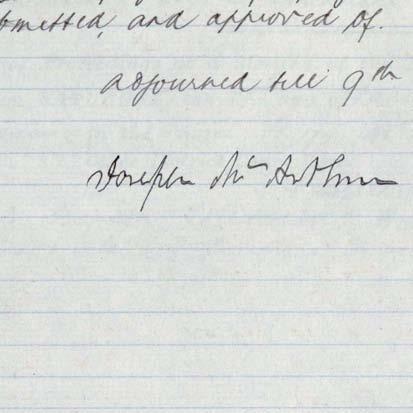 bmitted, and approved of.
adjourned till 9th
Joseph McArthur